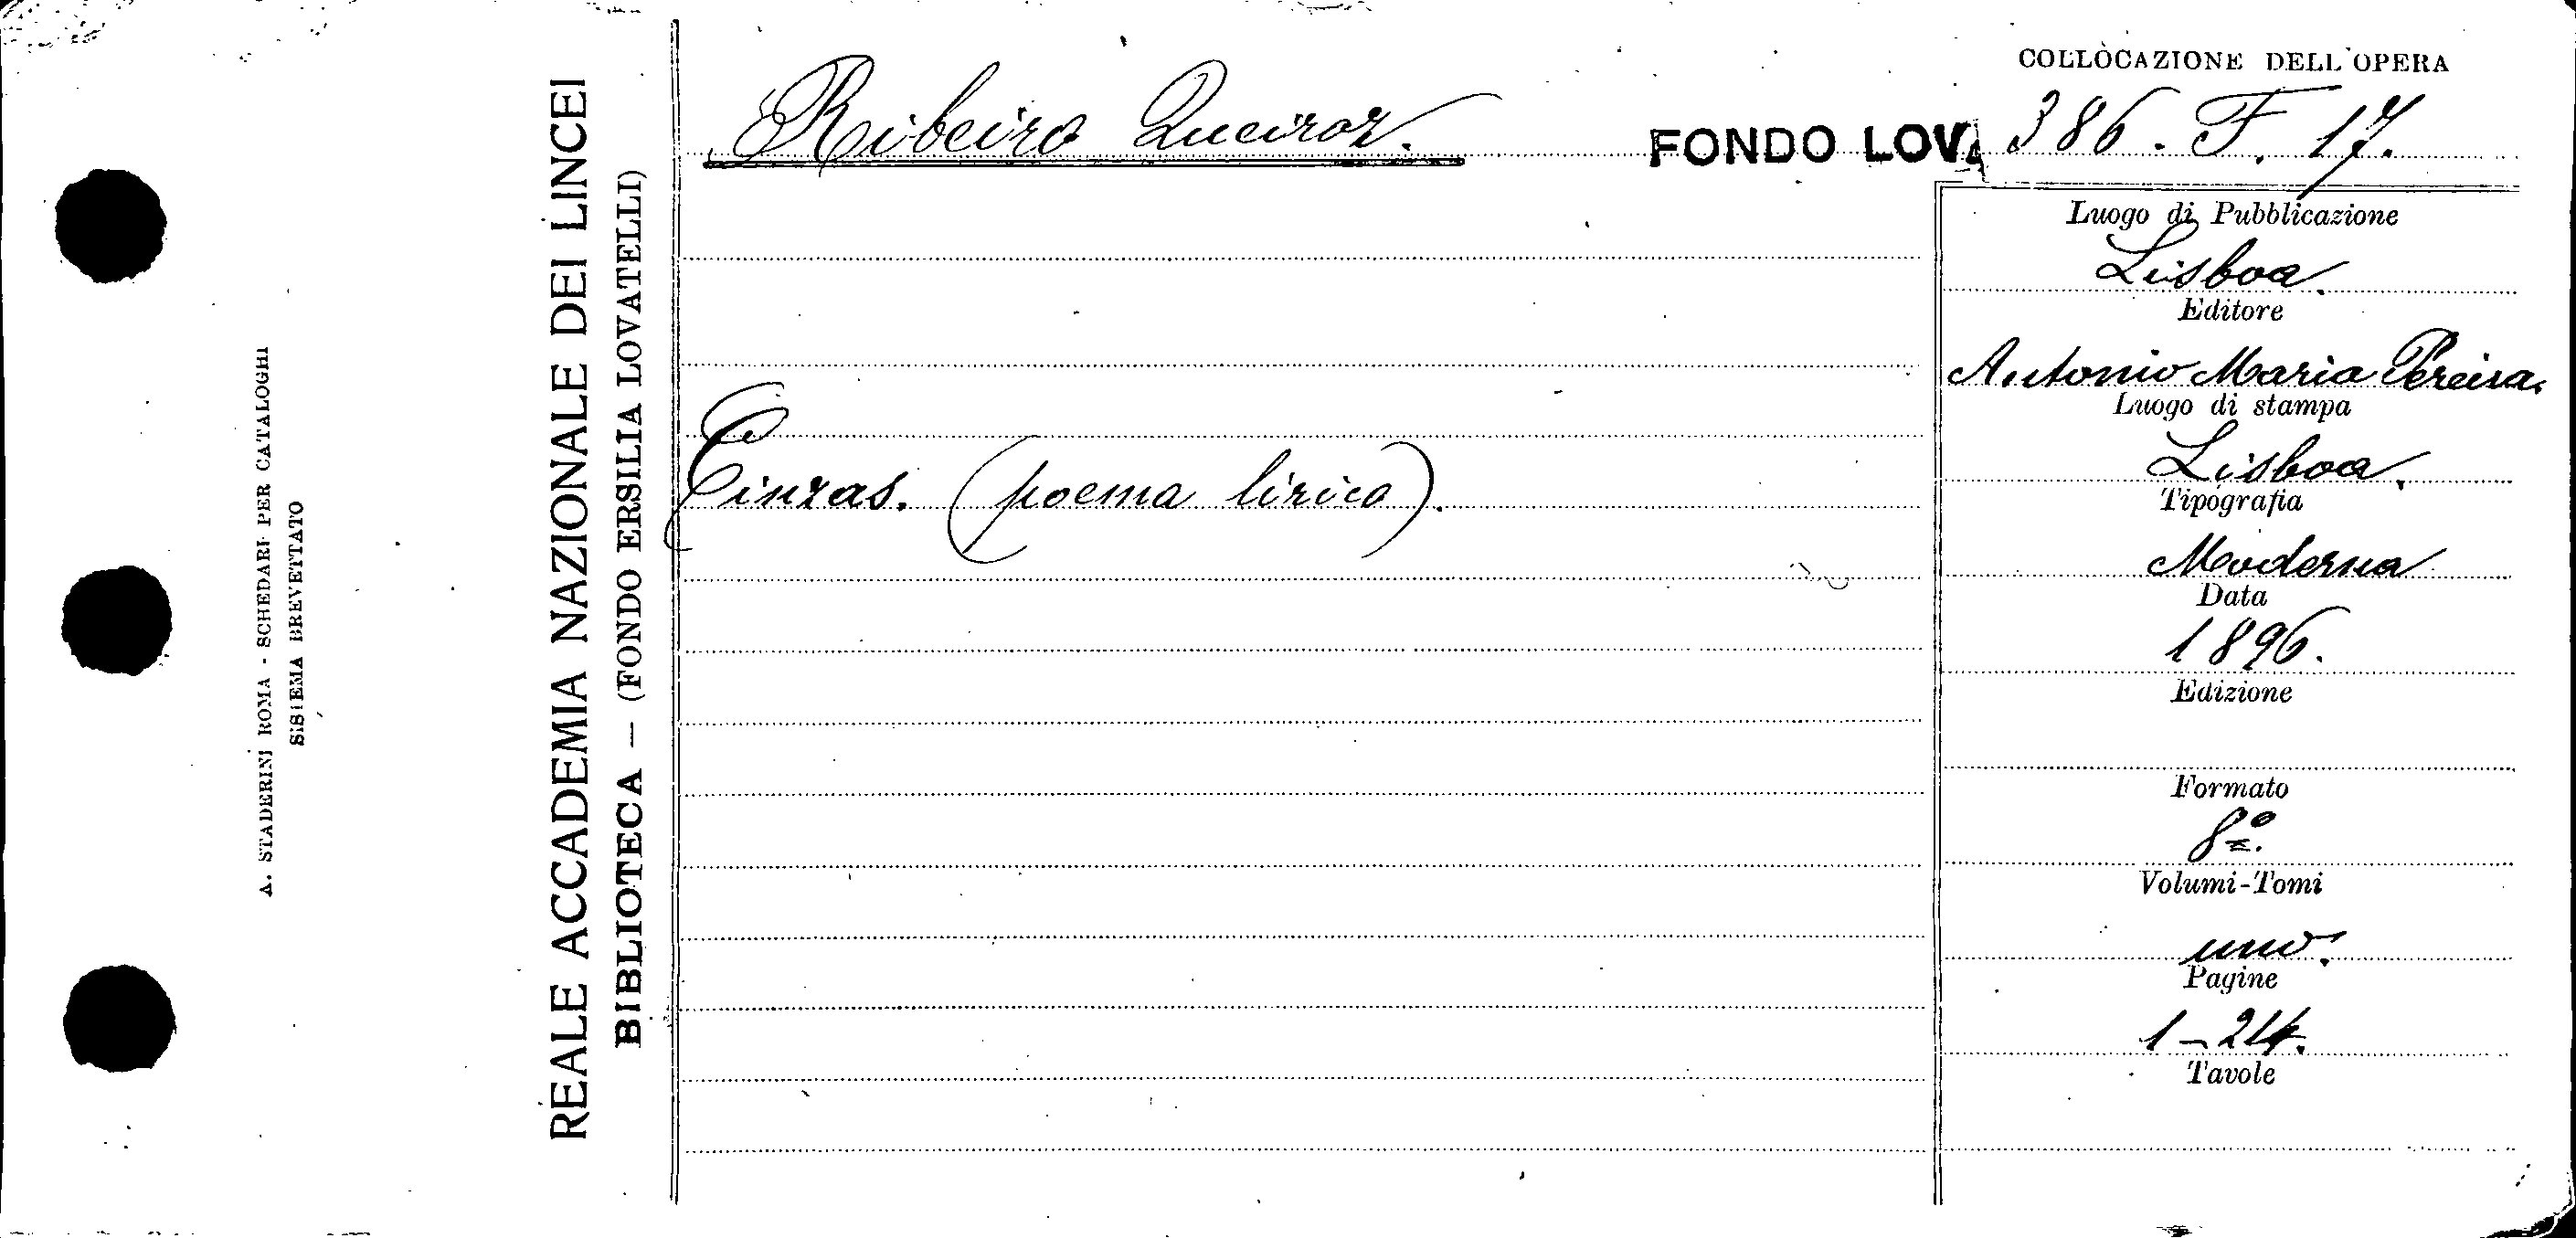 A. STADERINI ROMA - SCHEDARI PER CATALOGHI
SISTEMA BREVETTATO
REALE ACCADEMIA NAZIONALE DEI LINCEI
BIBLIOTECA — (FONDO ERSILIA LOVATELLI)
Ribeiro Queiroz.
FONDO LOVA
COLLOCAZIONE DELL'OPERA
386. F. 17.
Cinzas. (poema lirico).
Luogo di Pubblicazione
Lisboa.
Editore
Antonio Maria Pereira.
Luogo di stampa
Lisboa.
Tipografia
Moderna
Data
1896.
Edizione
Formato
8º.
Volumi-Tomi
uno.
Pagine
1-214.
Tavole